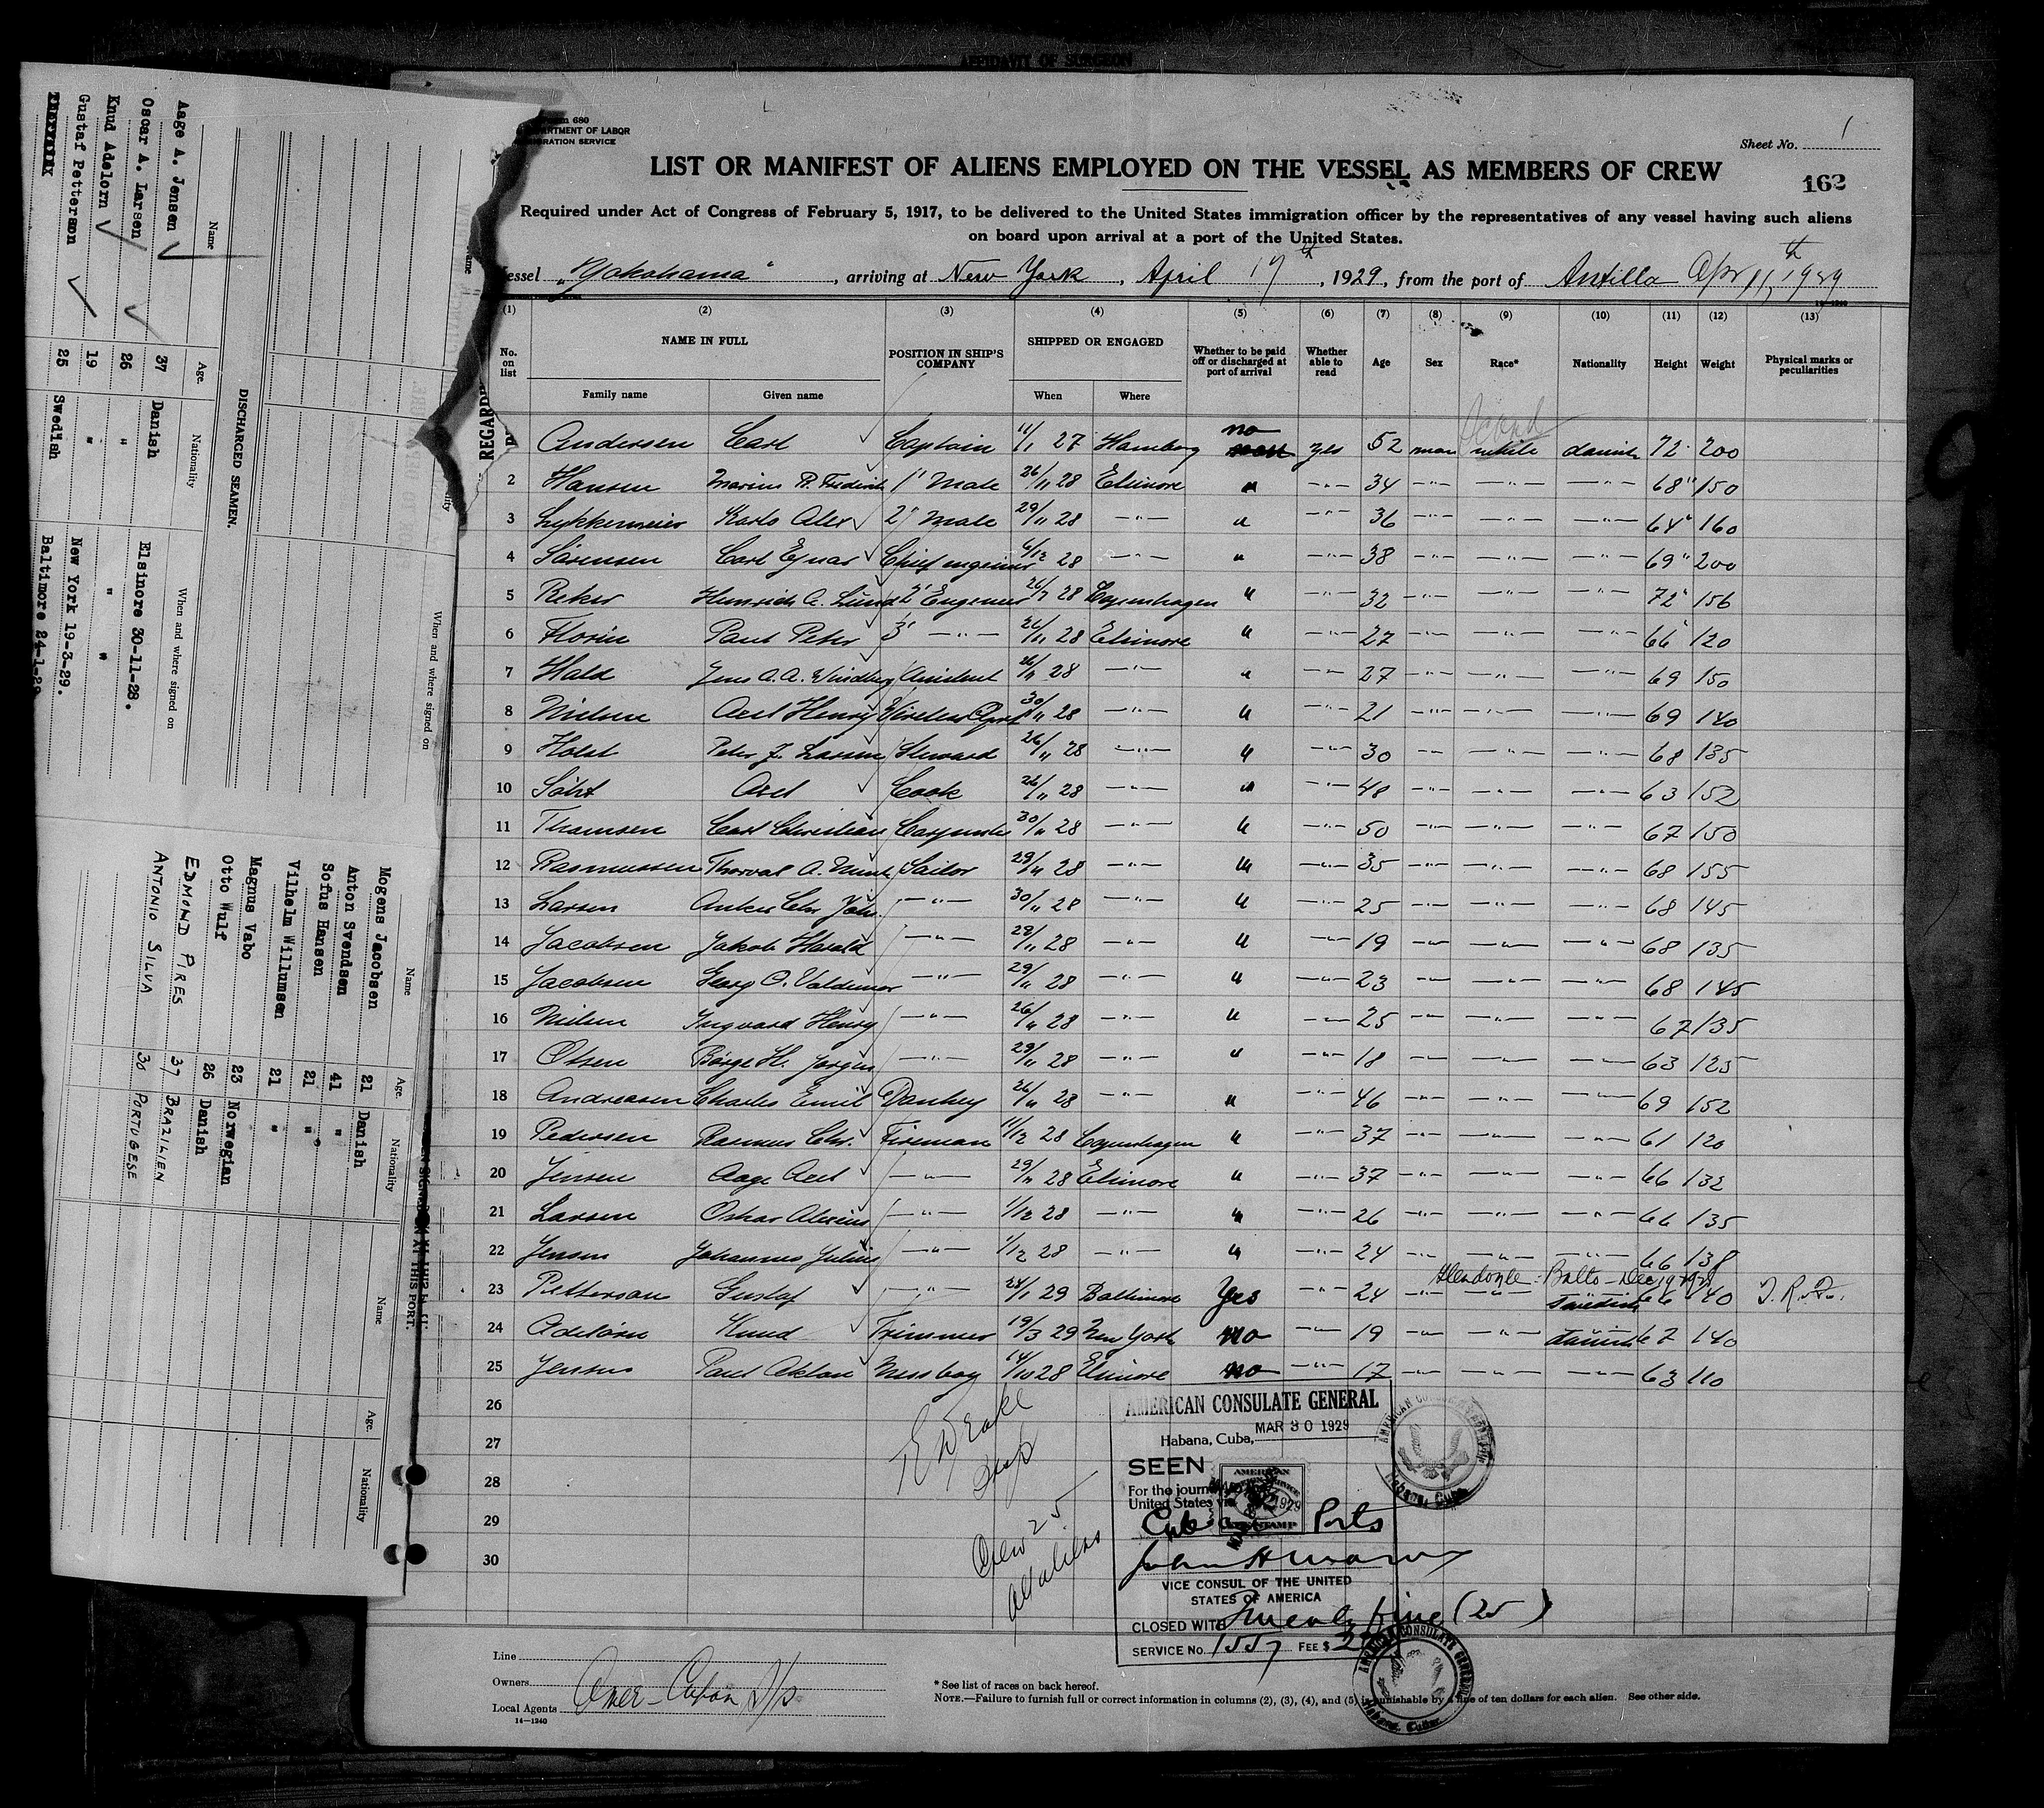 AFFIDAVIT OF SURGEON
Form 680
DEPARTMENT OF LABOR
IMMIGRATION SERVICE
Sheet No. 1
LIST OR MANIFEST OF ALIENS EMPLOYED ON THE VESSEL AS MEMBERS OF CREW
162
Required under Act of Congress of February 5, 1917, to be delivered to the United States immigration officer by the representatives of any vessel having such aliens
on board upon arrival at a port of the United States.
Vessel "Yokohama", arriving at New York, April 17th, 1929, from the port of Antilla Apr 11th, 1929
(1) (2) (3) (4) (5) (6) (7) (8) (9) (10) (11) (12) (13)
No. on list NAME IN FULL Family name Given name POSITION IN SHIP'S COMPANY SHIPPED OR ENGAGED When Where Whether to be paid off or discharged at port of arrival Whether able to read Age Sex Race* Nationality Height Weight Physical marks or peculiarities
Andersen Carl Captain 11/1 27 Hamborg no yes 52 man white danish 72" 200
2 Hansen Marius P. Frederik 1' Mate 26/11 28 Elsinore " -"- 34 -"- -"- -"- 68" 150
3 Lykkemeier Karlo Alex 2' Mate 29/11 28 -"- " -"- 36 -"- -"- -"- 64" 160
4 Sörensen Carl Ejnar Chief engineer 28 -"- " -"- 38 -"- -"- -"- 69" 200
5 Reker Heinrich A. Lund 2' Engeneer 28 Copenhagen " -"- 32 -"- -"- -"- 72" 156
6 Florin Paul Peter 3' -"- 26/11 28 Elsinore " -"- 27 -"- -"- -"- 66" 120
7 Hald Jens A. A. Windberg Assistent 26/11 28 -"- " -"- 27 -"- -"- -"- 69 150
8 Nielsen Axel Henry Wireless Oprt 30/11 28 -"- " -"- 21 -"- -"- -"- 69 140
9 Holst Peter J. Larsen Steward 26/11 28 -"- " -"- 30 -"- -"- -"- 68 135
10 Axel Cook 26/11 28 -"- " -"- 48 -"- -"- -"- 63 152
11 Thomsen Carl Christian Carpenter 30/11 28 -"- " -"- 50 -"- -"- -"- 67 150
12 Rasmussen Thorval A. Munk Sailor 29/11 28 -"- " -"- 35 -"- -"- -"- 68 155
13 Larsen Anker Chr Johs. -"- 30/11 28 -"- " -"- 25 -"- -"- -"- 68 145
14 Jacobsen Jakob Harald -"- 28/11 28 -"- " -"- 19 -"- -"- -"- 68 135
15 Jacobsen Georg O. Valdemar -"- 29/11 28 -"- " -"- 23 -"- -"- -"- 68 145
16 Nielsen Ingvard Henry -"- 26/11 28 -"- " -"- 25 -"- -"- -"- 67 135
17 Olsen Börge H. Jörgen -"- 29/11 28 -"- " -"- 18 -"- -"- -"- 63 125
18 Andreasen Charles Emil Donkey 26/11 28 -"- " -"- 46 -"- -"- -"- 69 152
19 Pedersen Rasmus Chr. Fireman 11/12 28 Copenhagen " -"- 37 -"- -"- -"- 61 120
20 Jensen Aage Axel -"- 29/11 28 Elsinore " -"- 37 -"- -"- -"- 66 132
21 Larsen Oskar Alexius -"- 1/12 28 -"- " -"- 26 -"- -"- -"- 66 135
22 Jensen Johannes Julius -"- 1/12 28 -"- " -"- 24 -"- -"- -"- 66 138
Glendoyle: Balto - Dec 19 1928
23 Petterson Gustaf -"- 24/1 29 Baltimore Yes -"- 24 -"- -"- Swedish 66 140
24 Adelörn Knud Trimmer 19/3 29 New York no -"- 19 -"- -"- danish 67 140
25 Jensen Paul Messboy 14/10 28 Elsinore no -"- 17 -"- -"- -"- 63 110
26
27
28
29
30
Crew 25
All aliens
AMERICAN CONSULATE GENERAL
Habana, Cuba, MAR 30 1929
SEEN
For the journey to the
United States via
Cuban Ports
VICE CONSUL OF THE UNITED
STATES OF AMERICA
CLOSED WITH Twenty five (25)
SERVICE No. 1557 FEE $
AMERICAN CONSULATE GENERAL
Habana, Cuba.
AMERICAN CONSULATE GENERAL
Habana, Cuba.
Line
Owners
Local Agents Amer-Cuban S/S
14-1240
* See list of races on back hereof.
NOTE.—Failure to furnish full or correct information in columns (2), (3), (4), and (5) is punishable by a fine of ten dollars for each alien. See other side.
DISCHARGED SEAMEN.
Name Age. Nationality When and where signed on
Aage A. Jensen 37 Danish Elsinore 30-11-28.
Oscar A. Larsen 26 " "
Knud Adelorn 19 " New York 19-3-29.
Gustaf Petterson 25 Swedish Baltimore 24-1-29
When and where signed on
REGARD
SIGNED ON AT THIS PORT.
Name Age. Nationality
Mogens Jacobsen 21 Danish
Anton Svendsen 41 "
Sofus Hansen 21 "
Vilhelm Willumsen 21 "
Magnus Vabo 23 Norwegian
Otto Wulf 26 Danish
EDMOND PIRES 37 BRAZILIEN
ANTONIO SILVA 30 PORTUGESE
Name Age. Nationality